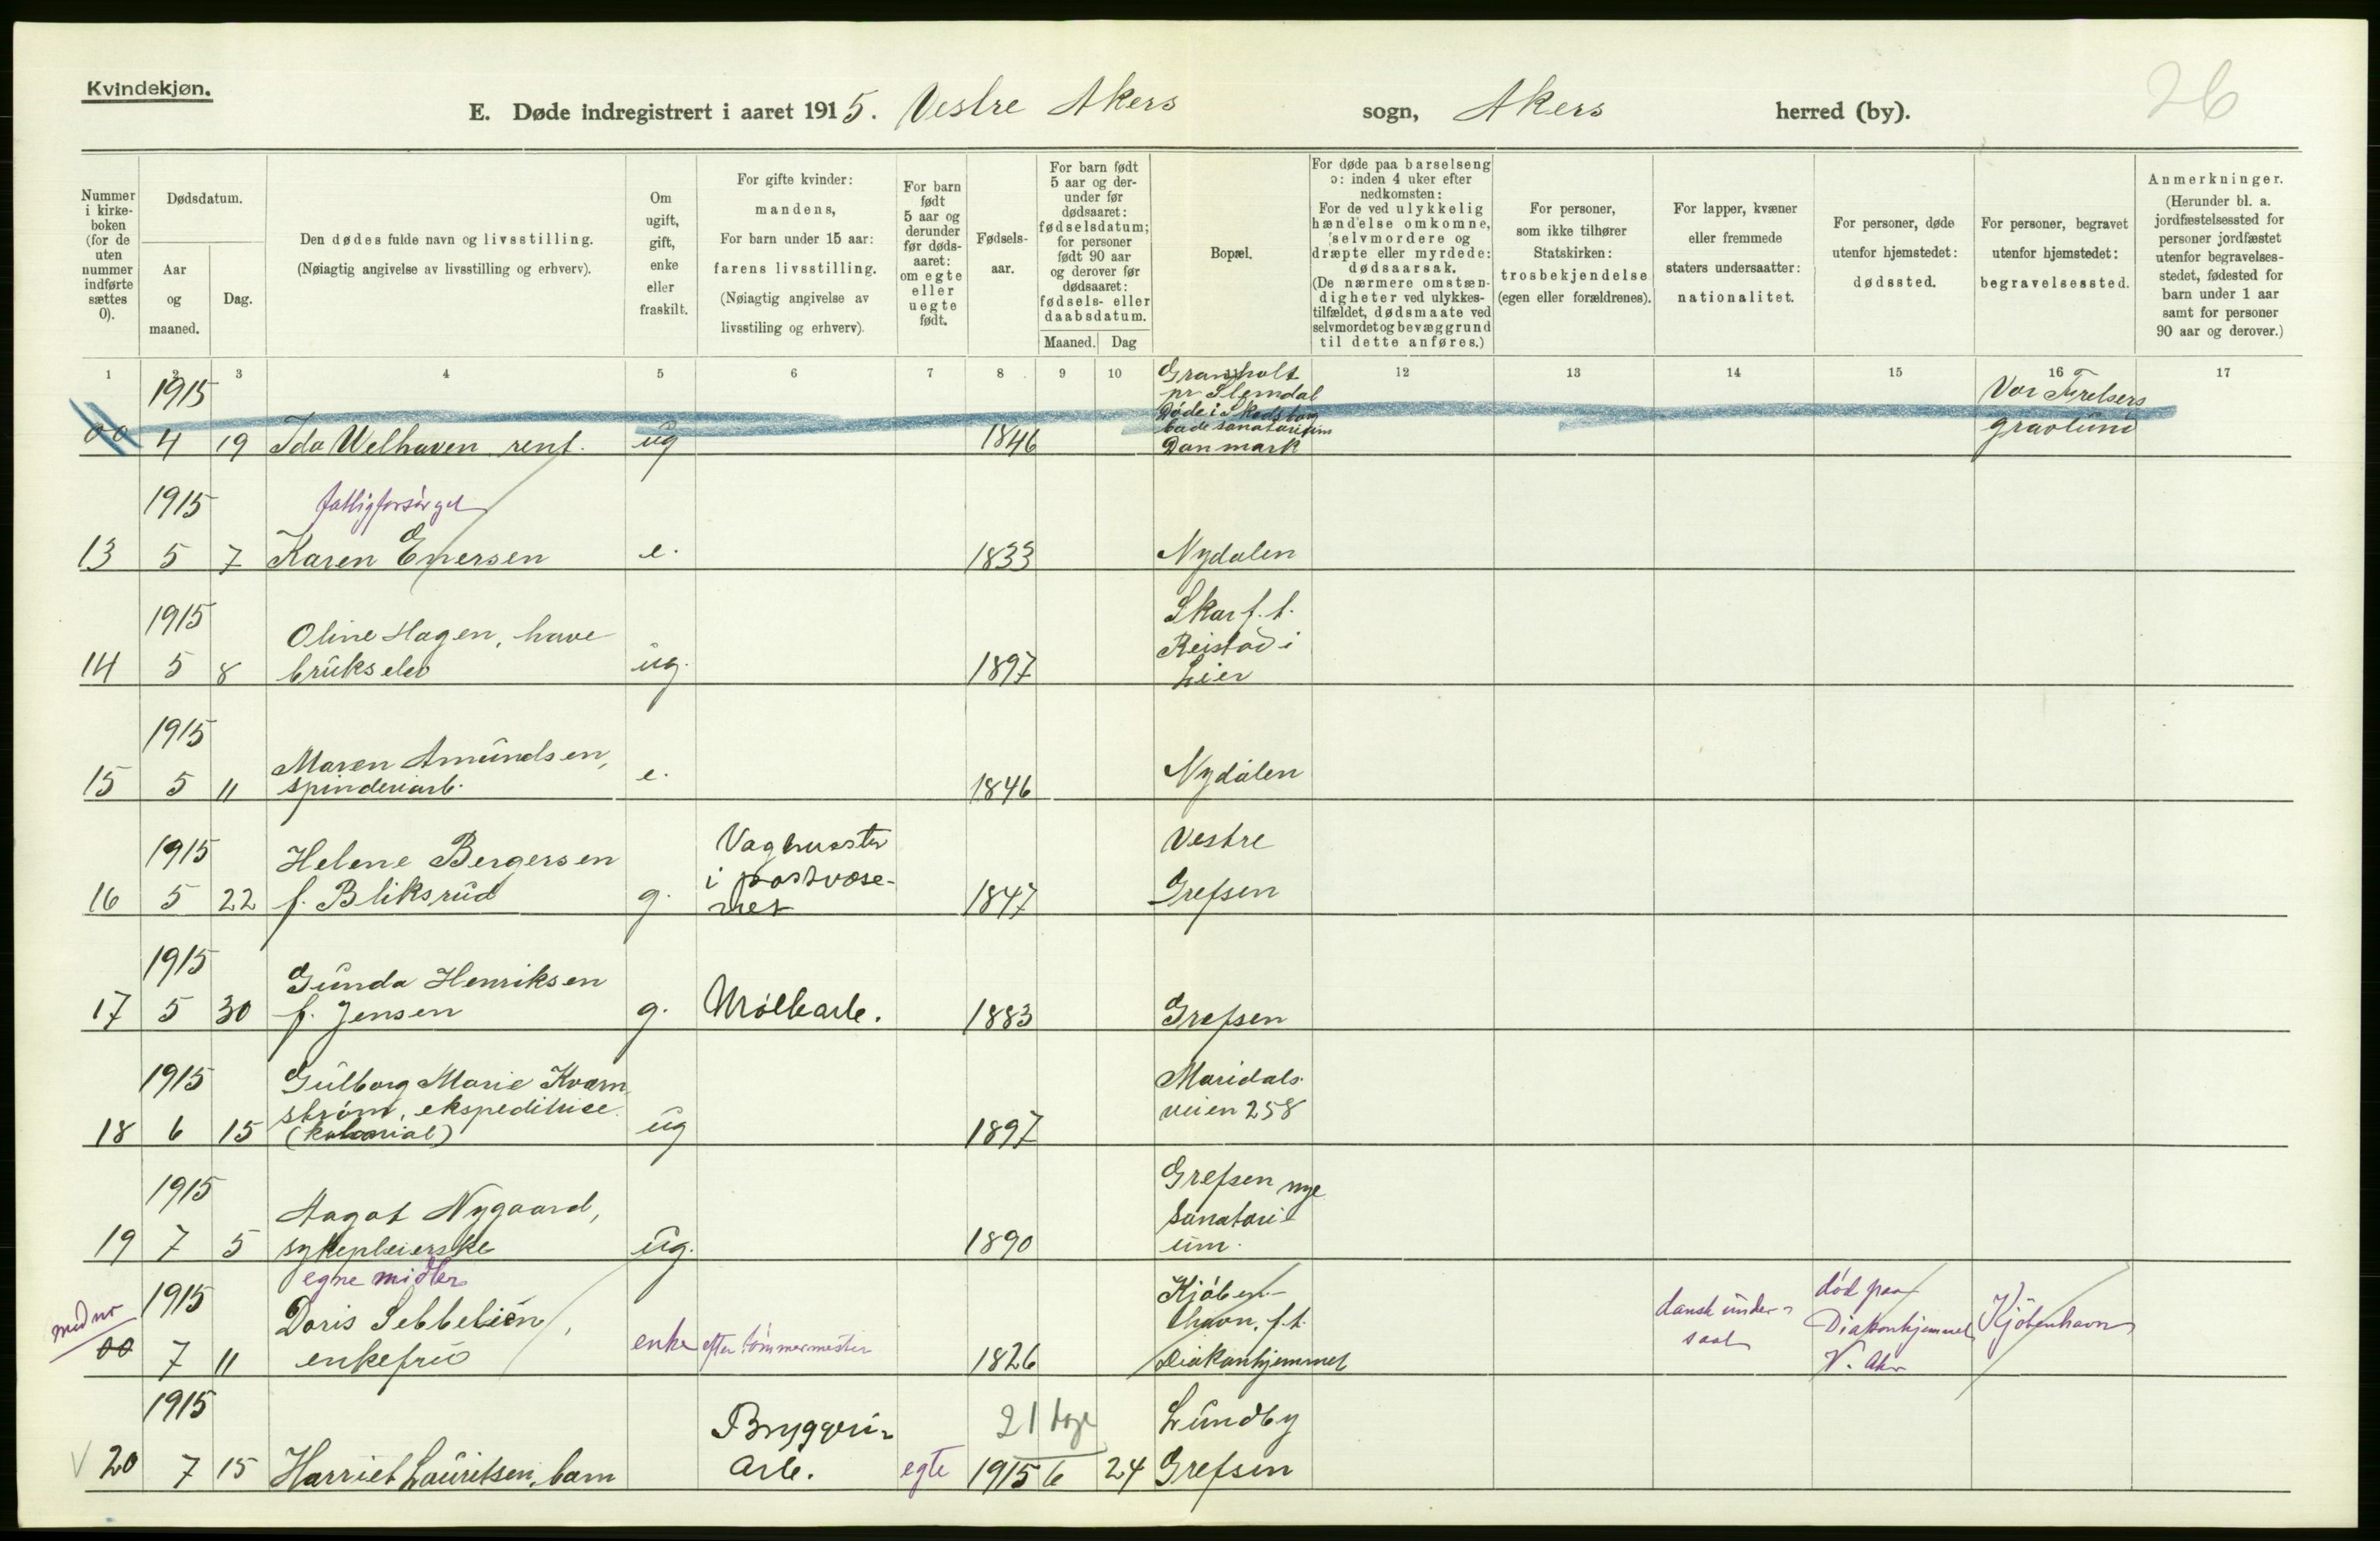 Kvindekjøn.
26
E. Døde indregistrert i aaret 1915. Vestre Akers sogn, Akers herred (by).
Nummer i kirke-boken (for de uten nummer indførte sættes 0).
Dødsdatum.
Aar og maaned.
Dag.
Den dødes fulde navn og livsstilling.
(Nøiagtig angivelse av livsstilling og erhverv).
Om ugift, gift, enke eller fraskilt.
For gifte kvinder:
mandens,
For barn under 15 aar:
farens livsstilling.
(Nøiagtig angivelse av
livsstiling og erhverv).
For barn født 5 aar og derunder før døds-aaret: om egte eller uegte født.
Fødsels-aar.
For barn født 5 aar og der-under før dødsaaret: fødselsdatum; for personer født 90 aar og derover før dødsaaret: fødsels- eller daabsdatum.
Maaned. Dag
Bopæl.
For døde paa barselseng
ɔ: inden 4 uker efter
nedkomsten:
For de ved ulykkelig
hændelse omkomne,
selvmordere og
dræpte eller myrdede:
dødsaarsak.
(De nærmere omstæn-
digheter ved ulykkes-
tilfældet, dødsmaate ved
selvmordet og bevæggrund
til dette anføres.)
For personer,
som ikke tilhører
Statskirken:
trosbekjendelse
(egen eller forældrenes).
For lapper, kvæner
eller fremmede
staters undersaatter:
nationalitet.
For personer, døde
utenfor hjemstedet:
dødssted.
For personer, begravet
utenfor hjemstedet:
begravelsessted.
Anmerkninger.
(Herunder bl. a.
jordfæstelsessted for
personer jordfæstet
utenfor begravelses-
stedet, fødested for
barn under 1 aar
samt for personer
90 aar og derover.)
1 2 3 4 5 6 7 8 9 10 12 13 14 15 16 17
1915 Granholt
pr. Slemdal Vor Frelsers
Døde i Skodsborg
badesanatorium gravlund
00 4 19 Ida Welhaven rent. ug 1846 Danmark
1915 fattigforsørget
13 5 7 Karen Enersen e. 1833 Nydalen
1915 Skar f. t.
Oline Hagen, have Reistad i
14 5 8 brukselev ug. 1897 Lier
1915
Maren Amundsen,
15 5 11 spinderiarb. e. 1846 Nydalen
1915 Helene Bergersen Vagtmester Vestre
i postvæse-
16 5 22 f. Bliksrud g. net 1847 Grefsen
1915 Gunda Henriksen
17 5 30 f. Jensen g. Møllearb. 1883 Grefsen
1915 Gulborg Marie Kværn Maridals-
strøm, ekspeditrice veien 258
18 6 15 (kolonial) ug 1897
1915 Grefsen nye
Aagot Nygaard, sanatori
19 7 5 sykepleierske ug. 1890 um.
egne midler
1915 Doris Sebbelien, Kjøben-
havn, f. t. dansk under- død paa
med nr saat Diakonhjemmet Kjøbenhavn
00 7 11 enkefru enke efter tømmermester 1826 Diakonhjemmet V. Aker
1915 Bryggeri- 21 dage Lundby
V 20 7 15 Harriet Lauritsen, barn arb. egte 1915 6 24 Grefsen